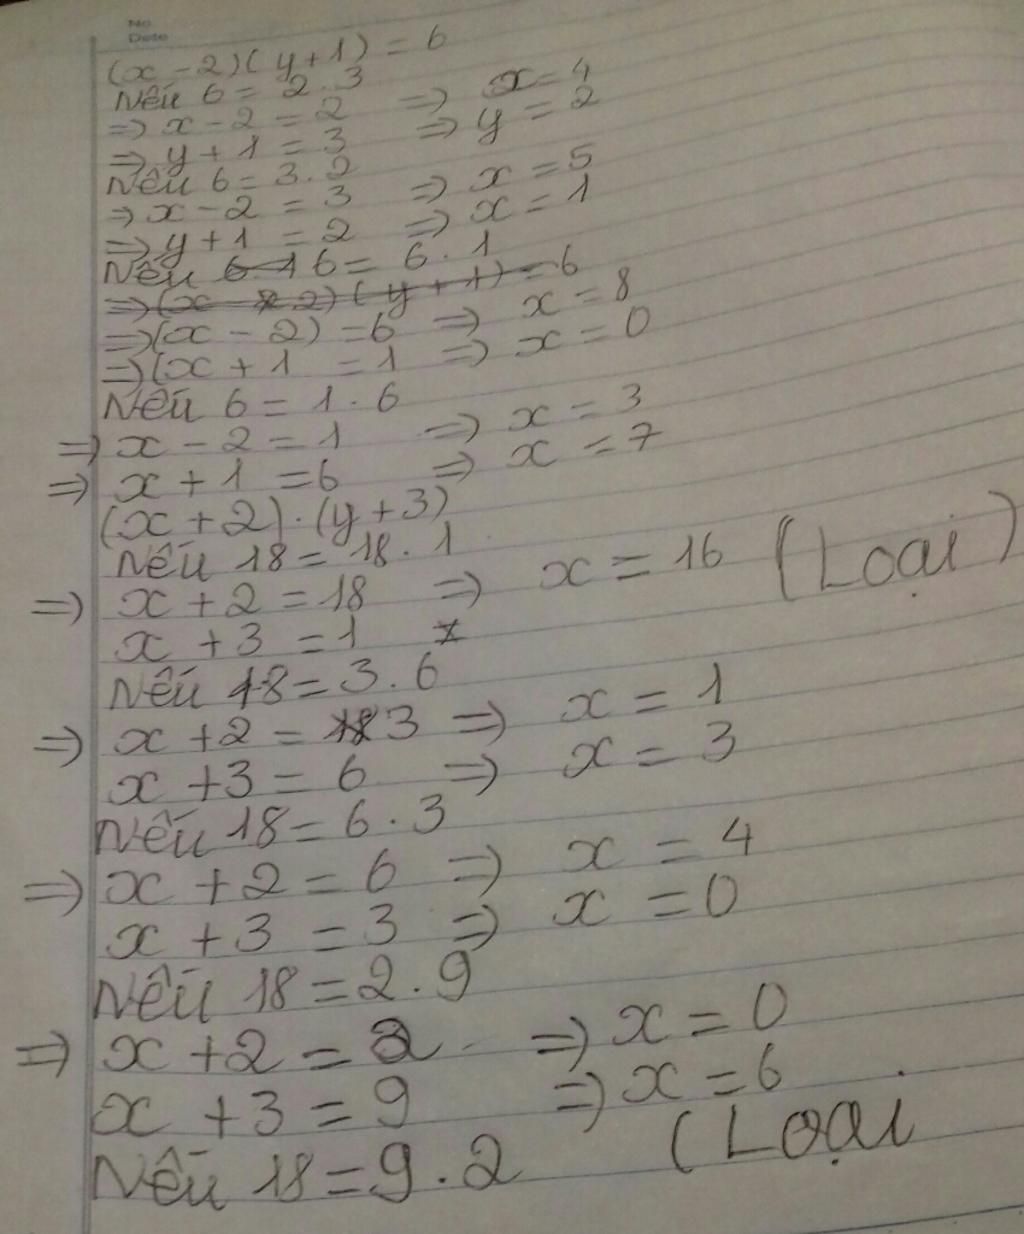 No.
Date
(x - 2)(y + 1) = 6
Nếu 6 = 2 . 3
=> x - 2 = 2 => x = 4
=> y + 1 = 3 => y = 2
Nếu 6 = 3 . 2
=> x - 2 = 3 => x = 5
=> y + 1 = 2 => x = 1
Nếu 6 = 6 . 1
=> (x - 2) (y + 1) = 6
=> (x - 2) = 6 => x = 8
=> (x + 1 = 1 => x = 0
Nếu 6 = 1 . 6
=> x - 2 = 1 => x = 3
=> x + 1 = 6 => x = 7
(x + 2) . (y + 3)
Nếu 18 = 18 . 1
=> x + 2 = 18 => x = 16 (Loại)
x + 3 = 1
Nếu 18 = 3 . 6
=> x + 2 = 3 => x = 1
x + 3 = 6 => x = 3
Nếu 18 = 6 . 3
=> x + 2 = 6 => x = 4
x + 3 = 3 => x = 0
Nếu 18 = 2 . 9
=> x + 2 = 2 => x = 0
x + 3 = 9 => x = 6
Nếu 18 = 9 . 2 (Loại